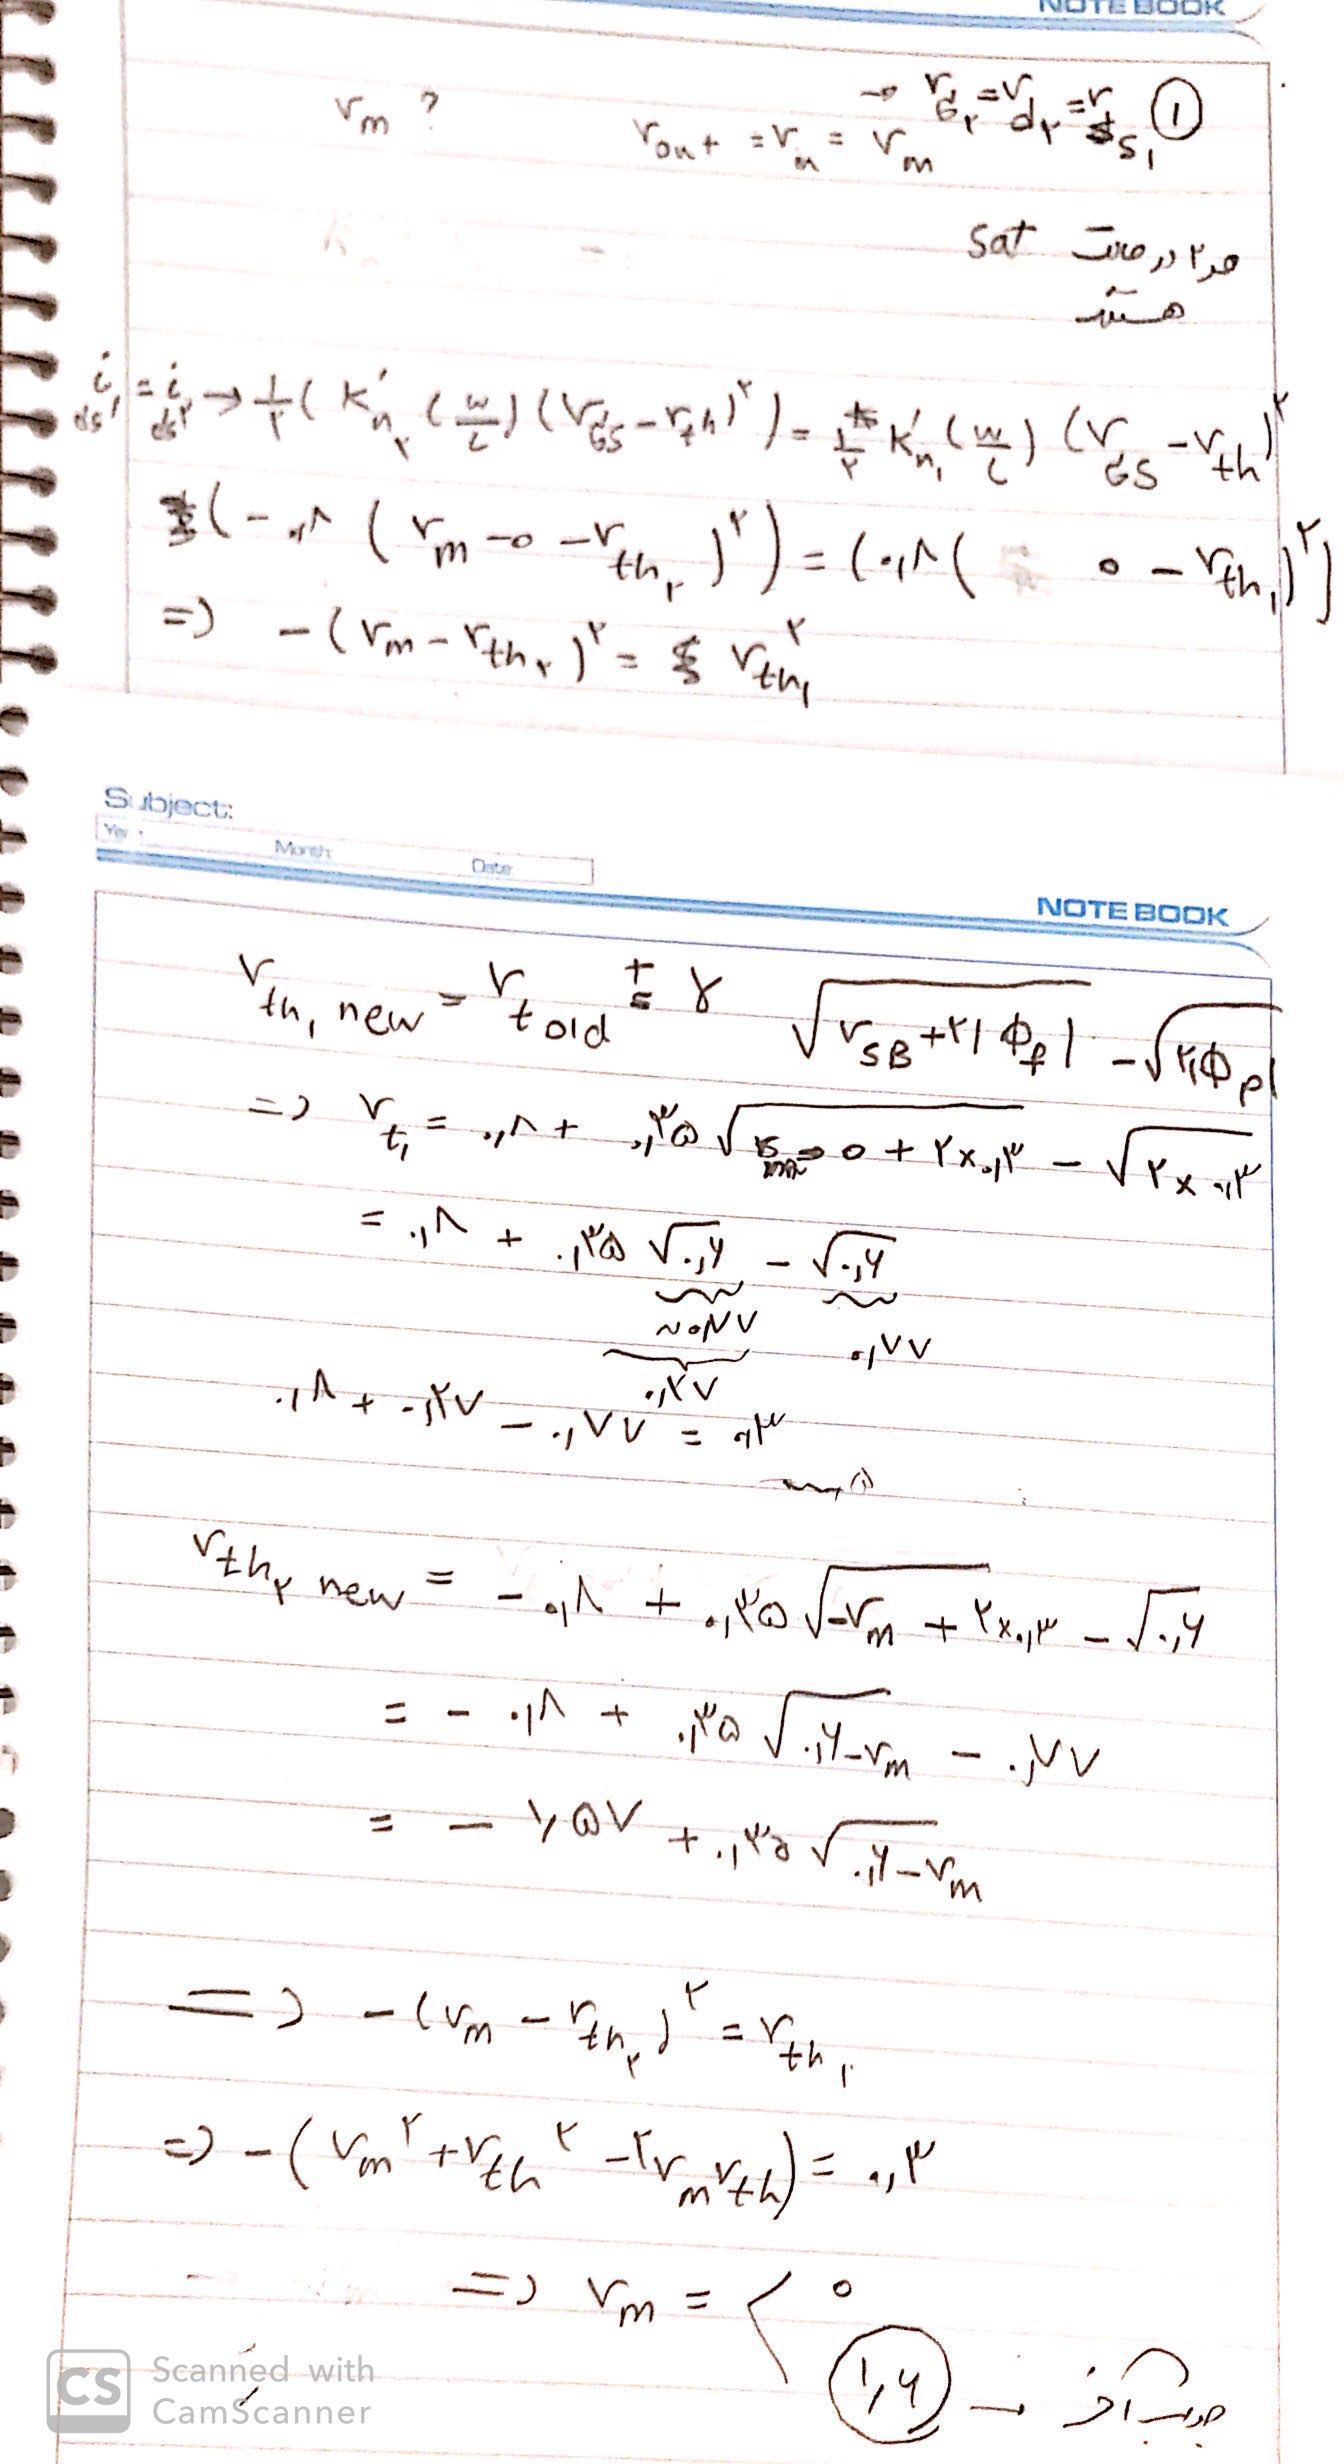 NOTE BOOK
① → V_G۲ = V_d۲ = V_S۱
V_out = V_in = V_m
V_m ?
هر ۲ در حالت sat
هستند
i_ds۱ = i_ds۲ → ۱/۲ ( K'_n۲ (w/L) (V_GS - V_th)^۲ ) = ۱/۲ K'_n۱ (w/L) (V_GS - V_th)^۲
( -۰,۸ ( V_m - ۰ - V_th۲ )^۲ ) = ( ۰,۸ ( ۰ - V_th۱ )^۲ )
=> - ( V_m - V_th۲ )^۲ = V_th۱^۲
Subject:
Year Month Date
NOTE BOOK
V_th۱ new = V_t old ± γ √(V_SB + ۲|Φ_f|) - √(۲|Φ_f|)
=> V_t۱ = ۰,۸ + ۰,۳۵ √(۰ + ۲×۰,۳) - √(۲×۰,۳)
= ۰,۸ + ۰,۳۵ √۰,۶ - √۰,۶
~۰,۷۷ ۰,۷۷
۰,۲۷
۰,۸ + ۰,۲۷ - ۰,۷۷ = ۰,۳
V_th۲ new = - ۰,۸ + ۰,۳۵ √(-V_m + ۲×۰,۳) - √۰,۶
= - ۰,۸ + ۰,۳۵ √(۰,۶ - V_m) - ۰,۷۷
= - ۱,۵۷ + ۰,۳۵ √(۰,۶ - V_m)
=> - ( V_m - V_th۲ )^۲ = V_th۱
=> - ( V_m^۲ + V_th^۲ - ۲V_m V_th ) = ۰,۳
=> V_m = < ۰
۱,۶ → جواب آخر
CS Scanned with
CamScanner